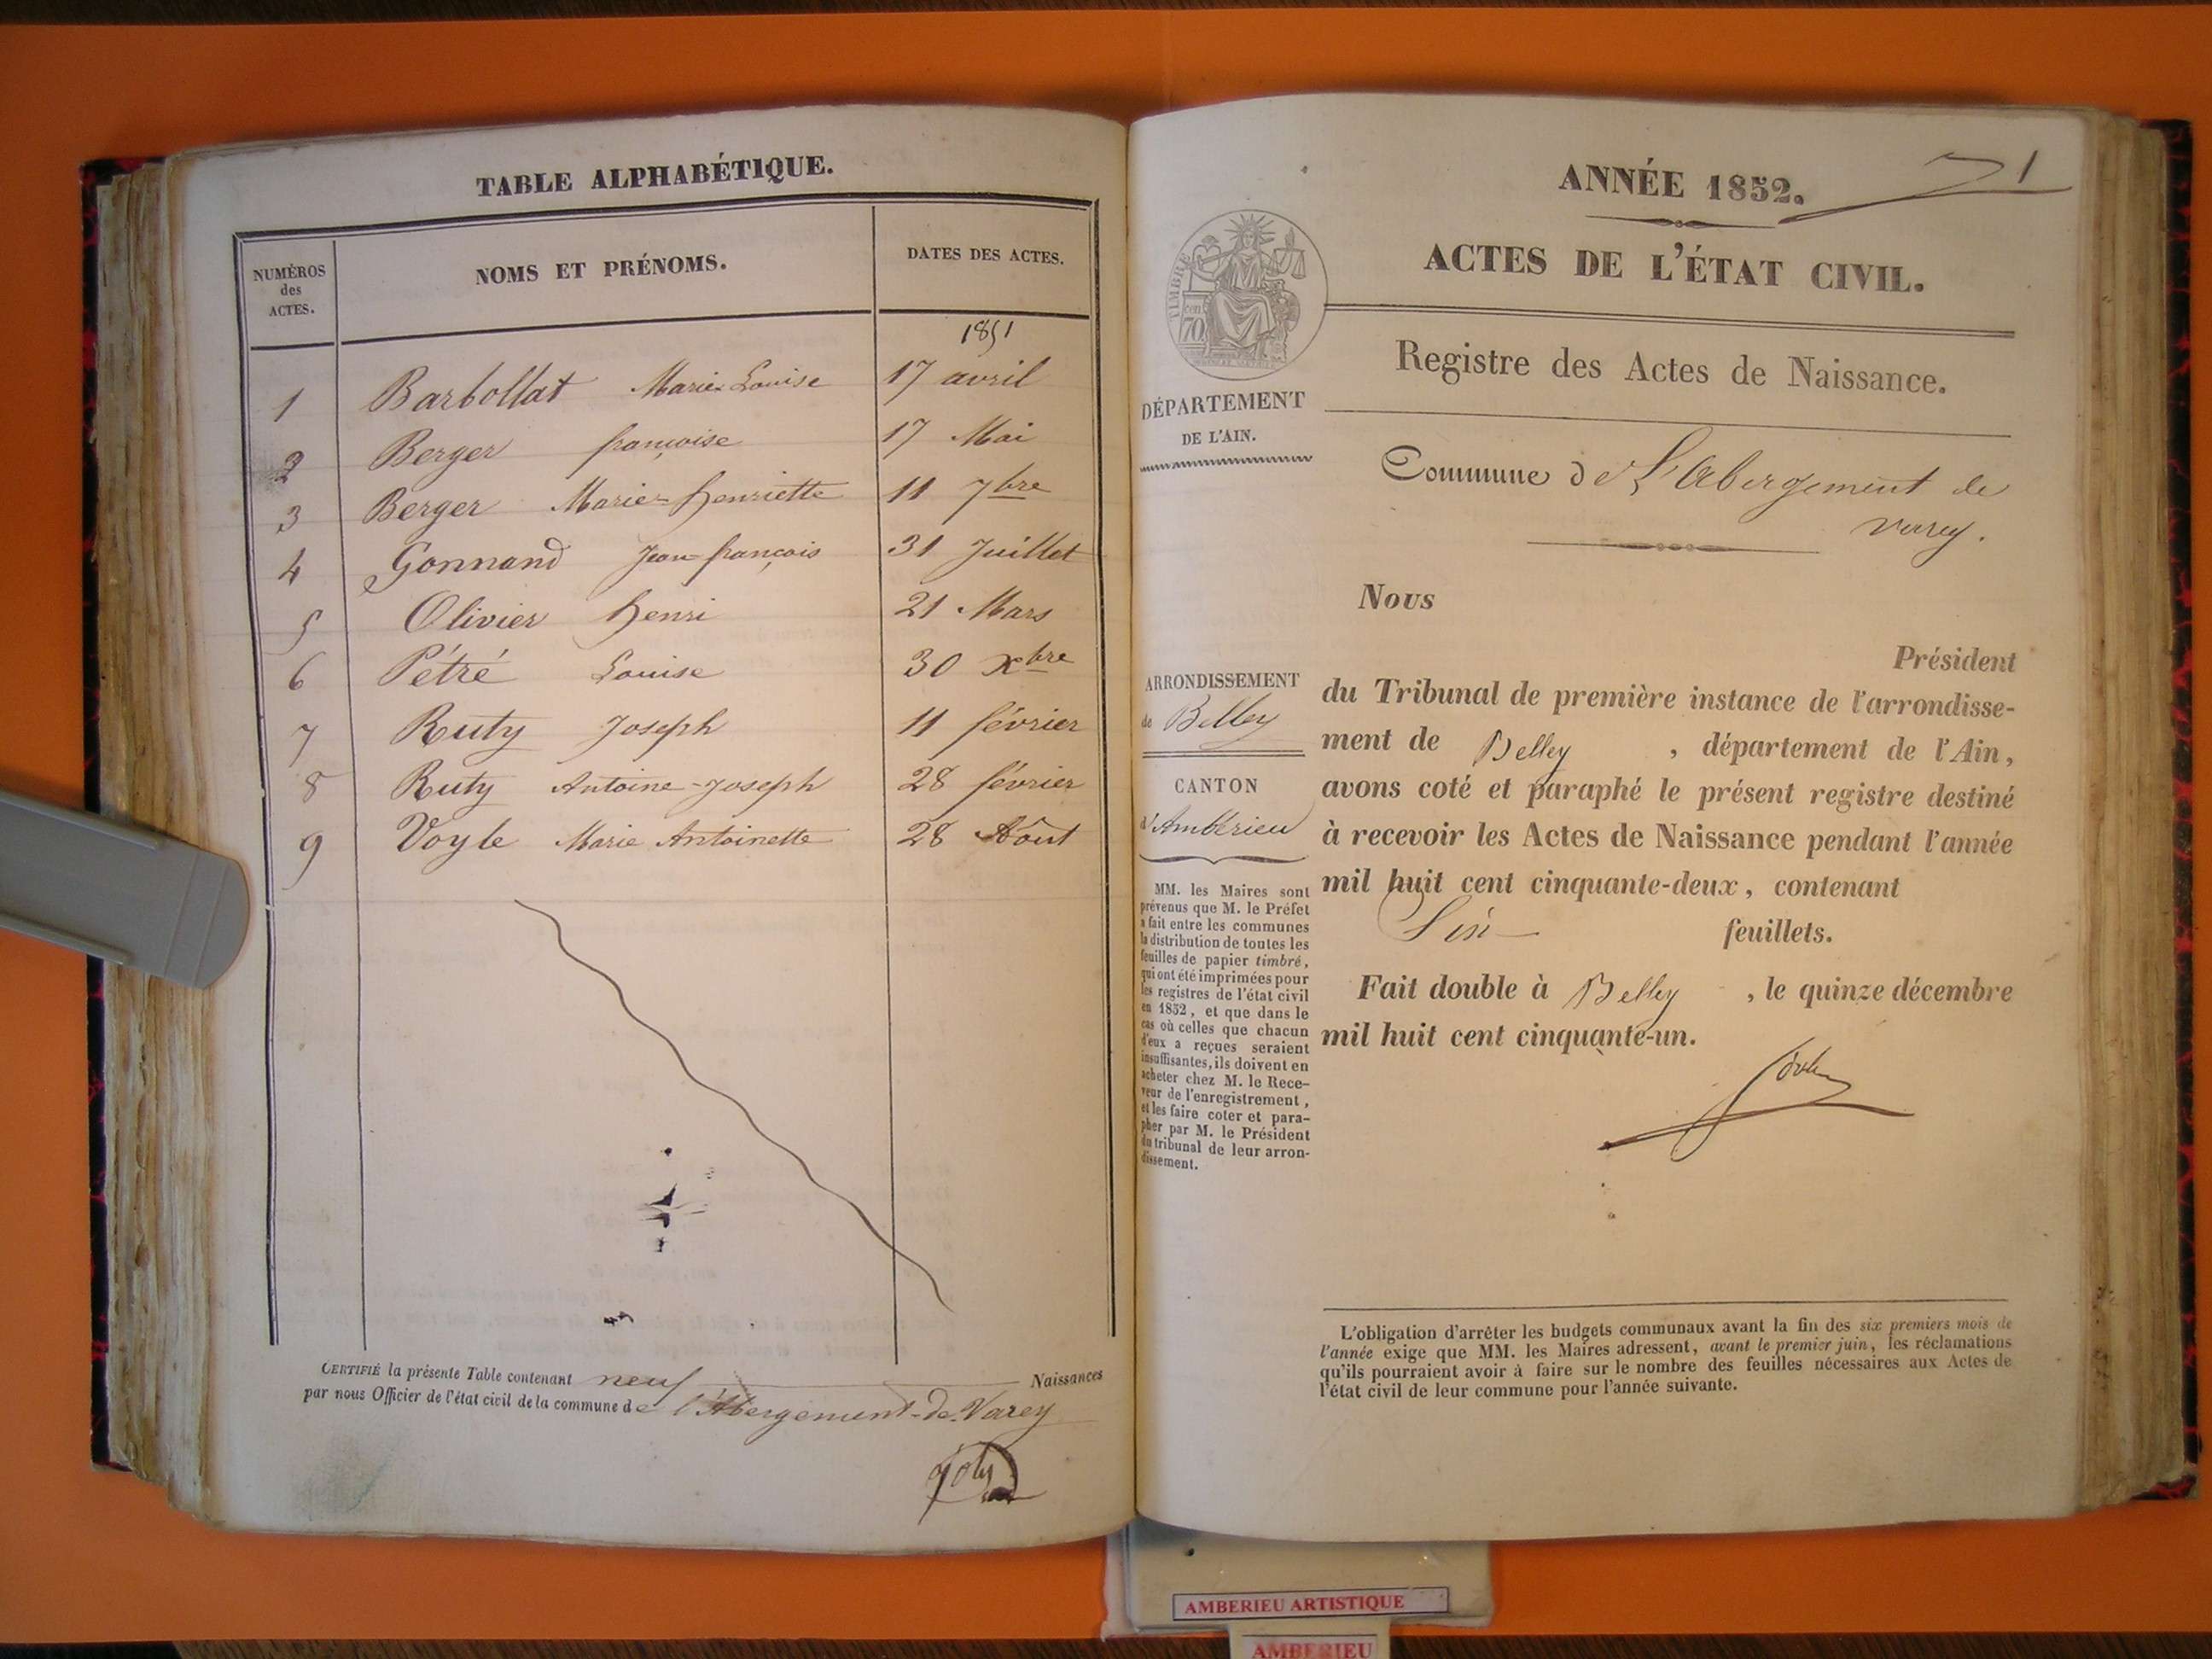 TABLE ALPHABÉTIQUE.
NUMÉROS
des
ACTES.
NOMS ET PRÉNOMS.
DATES DES ACTES.
1851
1 Barbollat Marie-Louise 17 avril
2 Berger françoise 17 Mai
3 Berger Marie-henriette 11 7bre
4 Gonnand Jean-françois 31 Juillet
5 Olivier henri 21 Mars
6 Pétré Louise 30 xbre
7 Ruty Joseph 11 février
8 Ruty Antoine-Joseph 28 février
9 Voyle Marie Antoinette 28 Aôut
CERTIFIÉ la présente Table contenant neuf Naissances
par nous Officier de l'état civil de la commune de l'Abergement-de-Varey
ANNÉE 1852.
1
ACTES DE L'ÉTAT CIVIL.
TIMBRE
70
Registre des Actes de Naissance.
DÉPARTEMENT
DE L'AIN.
Commune de L'abergement de
varey.
Nous
Président
du Tribunal de première instance de l'arrondisse-
ment de Belley , département de l'Ain,
avons coté et paraphé le présent registre destiné
à recevoir les Actes de Naissance pendant l'année
mil huit cent cinquante-deux, contenant
feuillets.
Fait double à Belley , le quinze décembre
mil huit cent cinquante-un.
ARRONDISSEMENT
de Belley
CANTON
d'Ambérieu
MM. les Maires sont
prévenus que M. le Préfet
a fait entre les communes
la distribution de toutes les
feuilles de papier timbré,
qui ont été imprimées pour
les registres de l'état civil
en 1852, et que dans le
cas où celles que chacun
d'eux a reçues seraient
insuffisantes, ils doivent en
acheter chez M. le Rece-
veur de l'enregistrement,
et les faire coter et para-
pher par M. le Président
du tribunal de leur arron-
dissement.
L'obligation d'arrêter les budgets communaux avant la fin des six premiers mois de
l'année exige que MM. les Maires adressent, avant le premier juin, les réclamations
qu'ils pourraient avoir à faire sur le nombre des feuilles nécessaires aux Actes de
l'état civil de leur commune pour l'année suivante.
AMBERIEU ARTISTIQUE
AMBERIEU